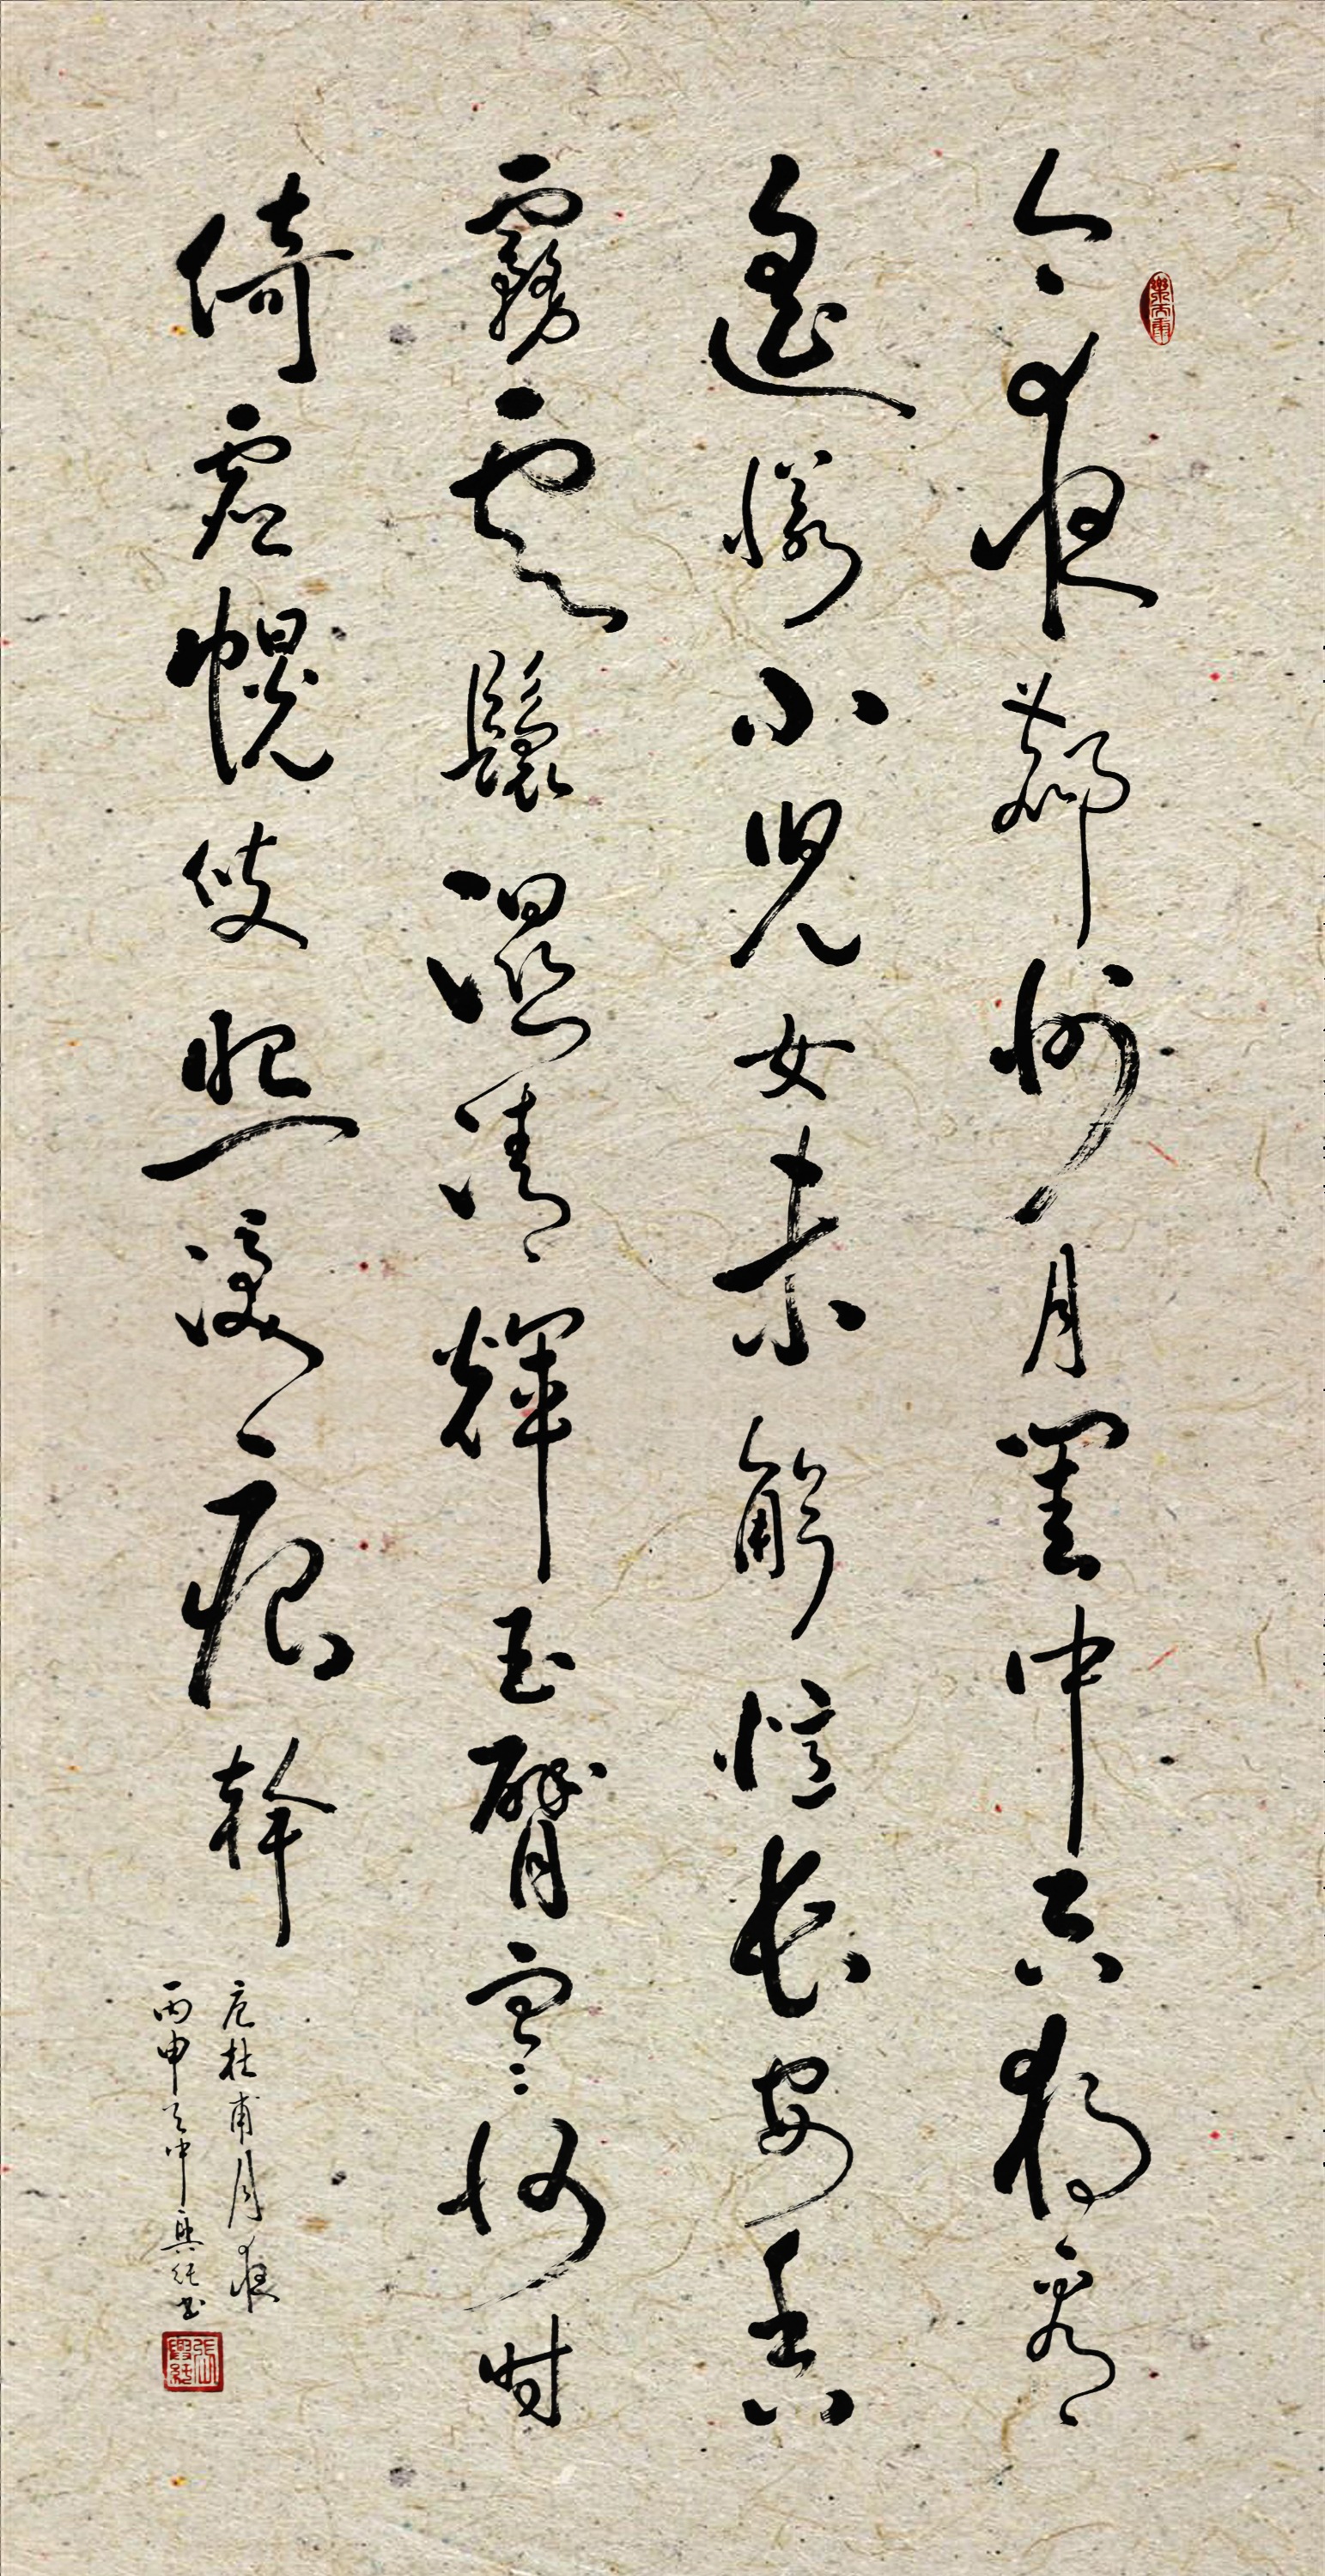 今夜鄜州月閨中只獨看
遙憐小兒女未解憶長安香
霧雲鬟濕清輝玉臂寒何時
倚虛幌雙照淚痕幹
杜甫月夜
丙申天中興純書
張興純